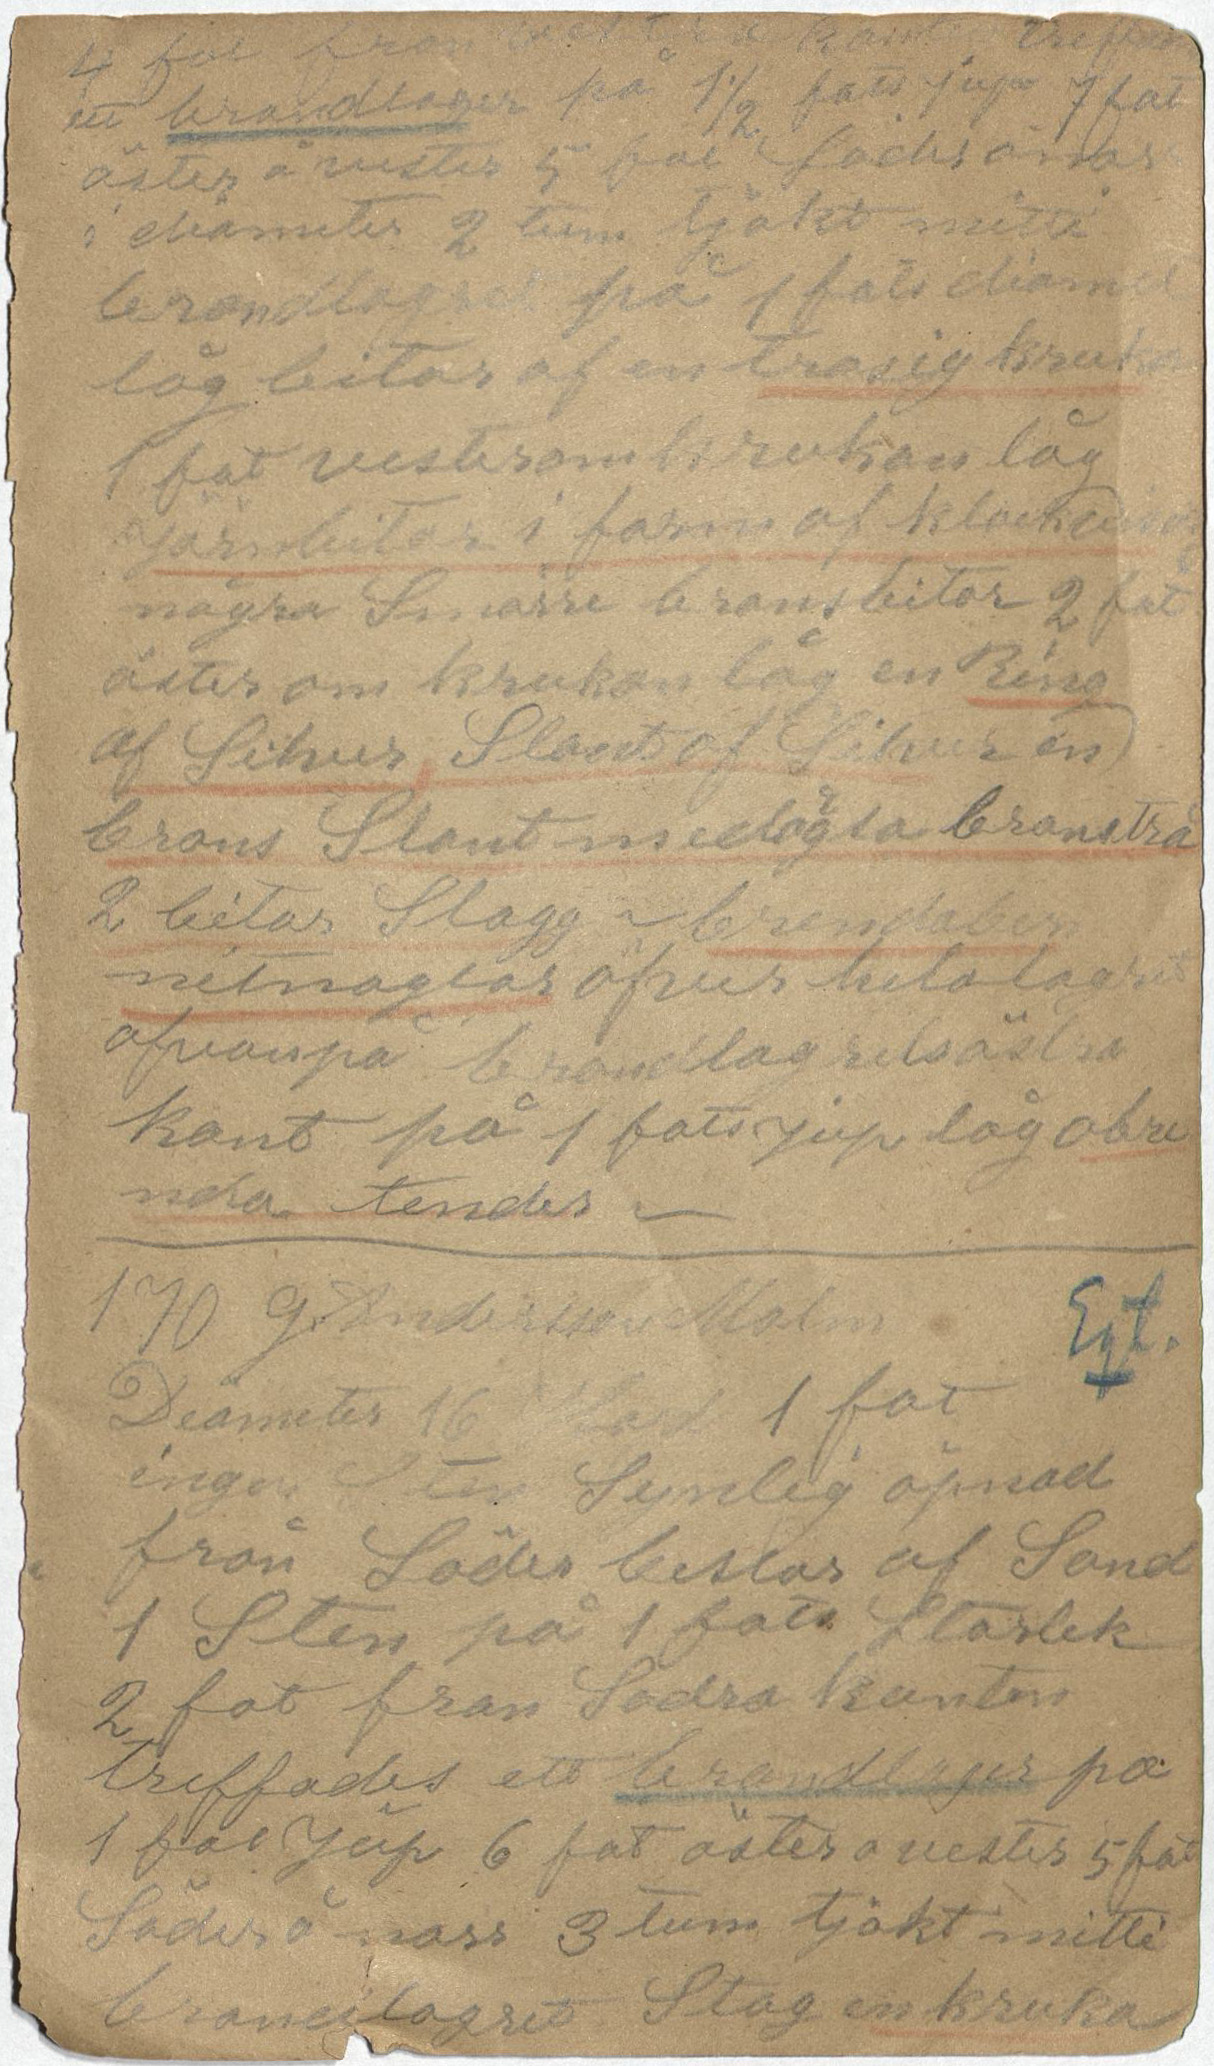 4 fot från kant treffades
ett brandlager på 1 1/2 fots jup 7 fot
öster å vester 5 fot söder å norr
i diameter 2 tum tjökt mitt i
brandlagret på 1 fots diamet
låg bitar af en trasig kruka
1 fot vesterom krukan låg
järnbitar i form af
några Smärre bronsbitar 2 fot
öster om krukan låg en Ring
af Silver, Slant af Silver en
brons Slant med ögla bronstrå
2 bitar Slagg brenda ben
nitnaglar öfver hela lagret
ofvanpå brandlagrets östra
kant på 1 fots jup låg obre
nda tender
170 G. Andersson Malm Egt.
Diameter 16 1 fot
ingen Sten Synlig öpnad
från Söder bestar af Sand
1 Sten på 1 fots Storlek
2 fot fran Sodra kanten
treffades ett brandlager på
1 fot Jup 6 fot öster o vester 5 fot
Söder å norr 3 tum tjökt mitt i
brandlagret Stog en kruka